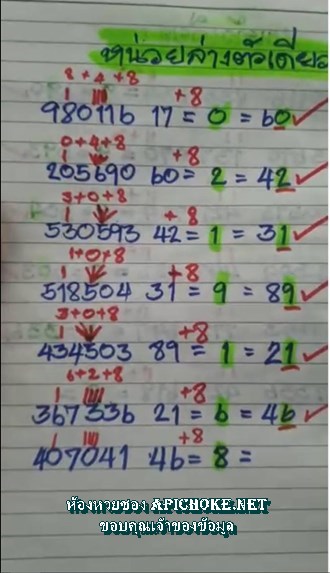 หน่วยล่างตัวเดียว
8+4+8
+8
980116 17 = 0 = 60
0+4+8
+8
205690 60 = 2 = 42
3+0+8
+8
530593 42 = 1 = 31
1+0+8
+8
518504 31 = 9 = 89
3+0+8
+8
434503 89 = 1 = 21
6+2+8
+8
367336 21 = 6 = 46
+8
407041 46 = 8 =
ห้องหวยซอง APICHOKE.NET
ขอบคุณเจ้าของข้อมูล